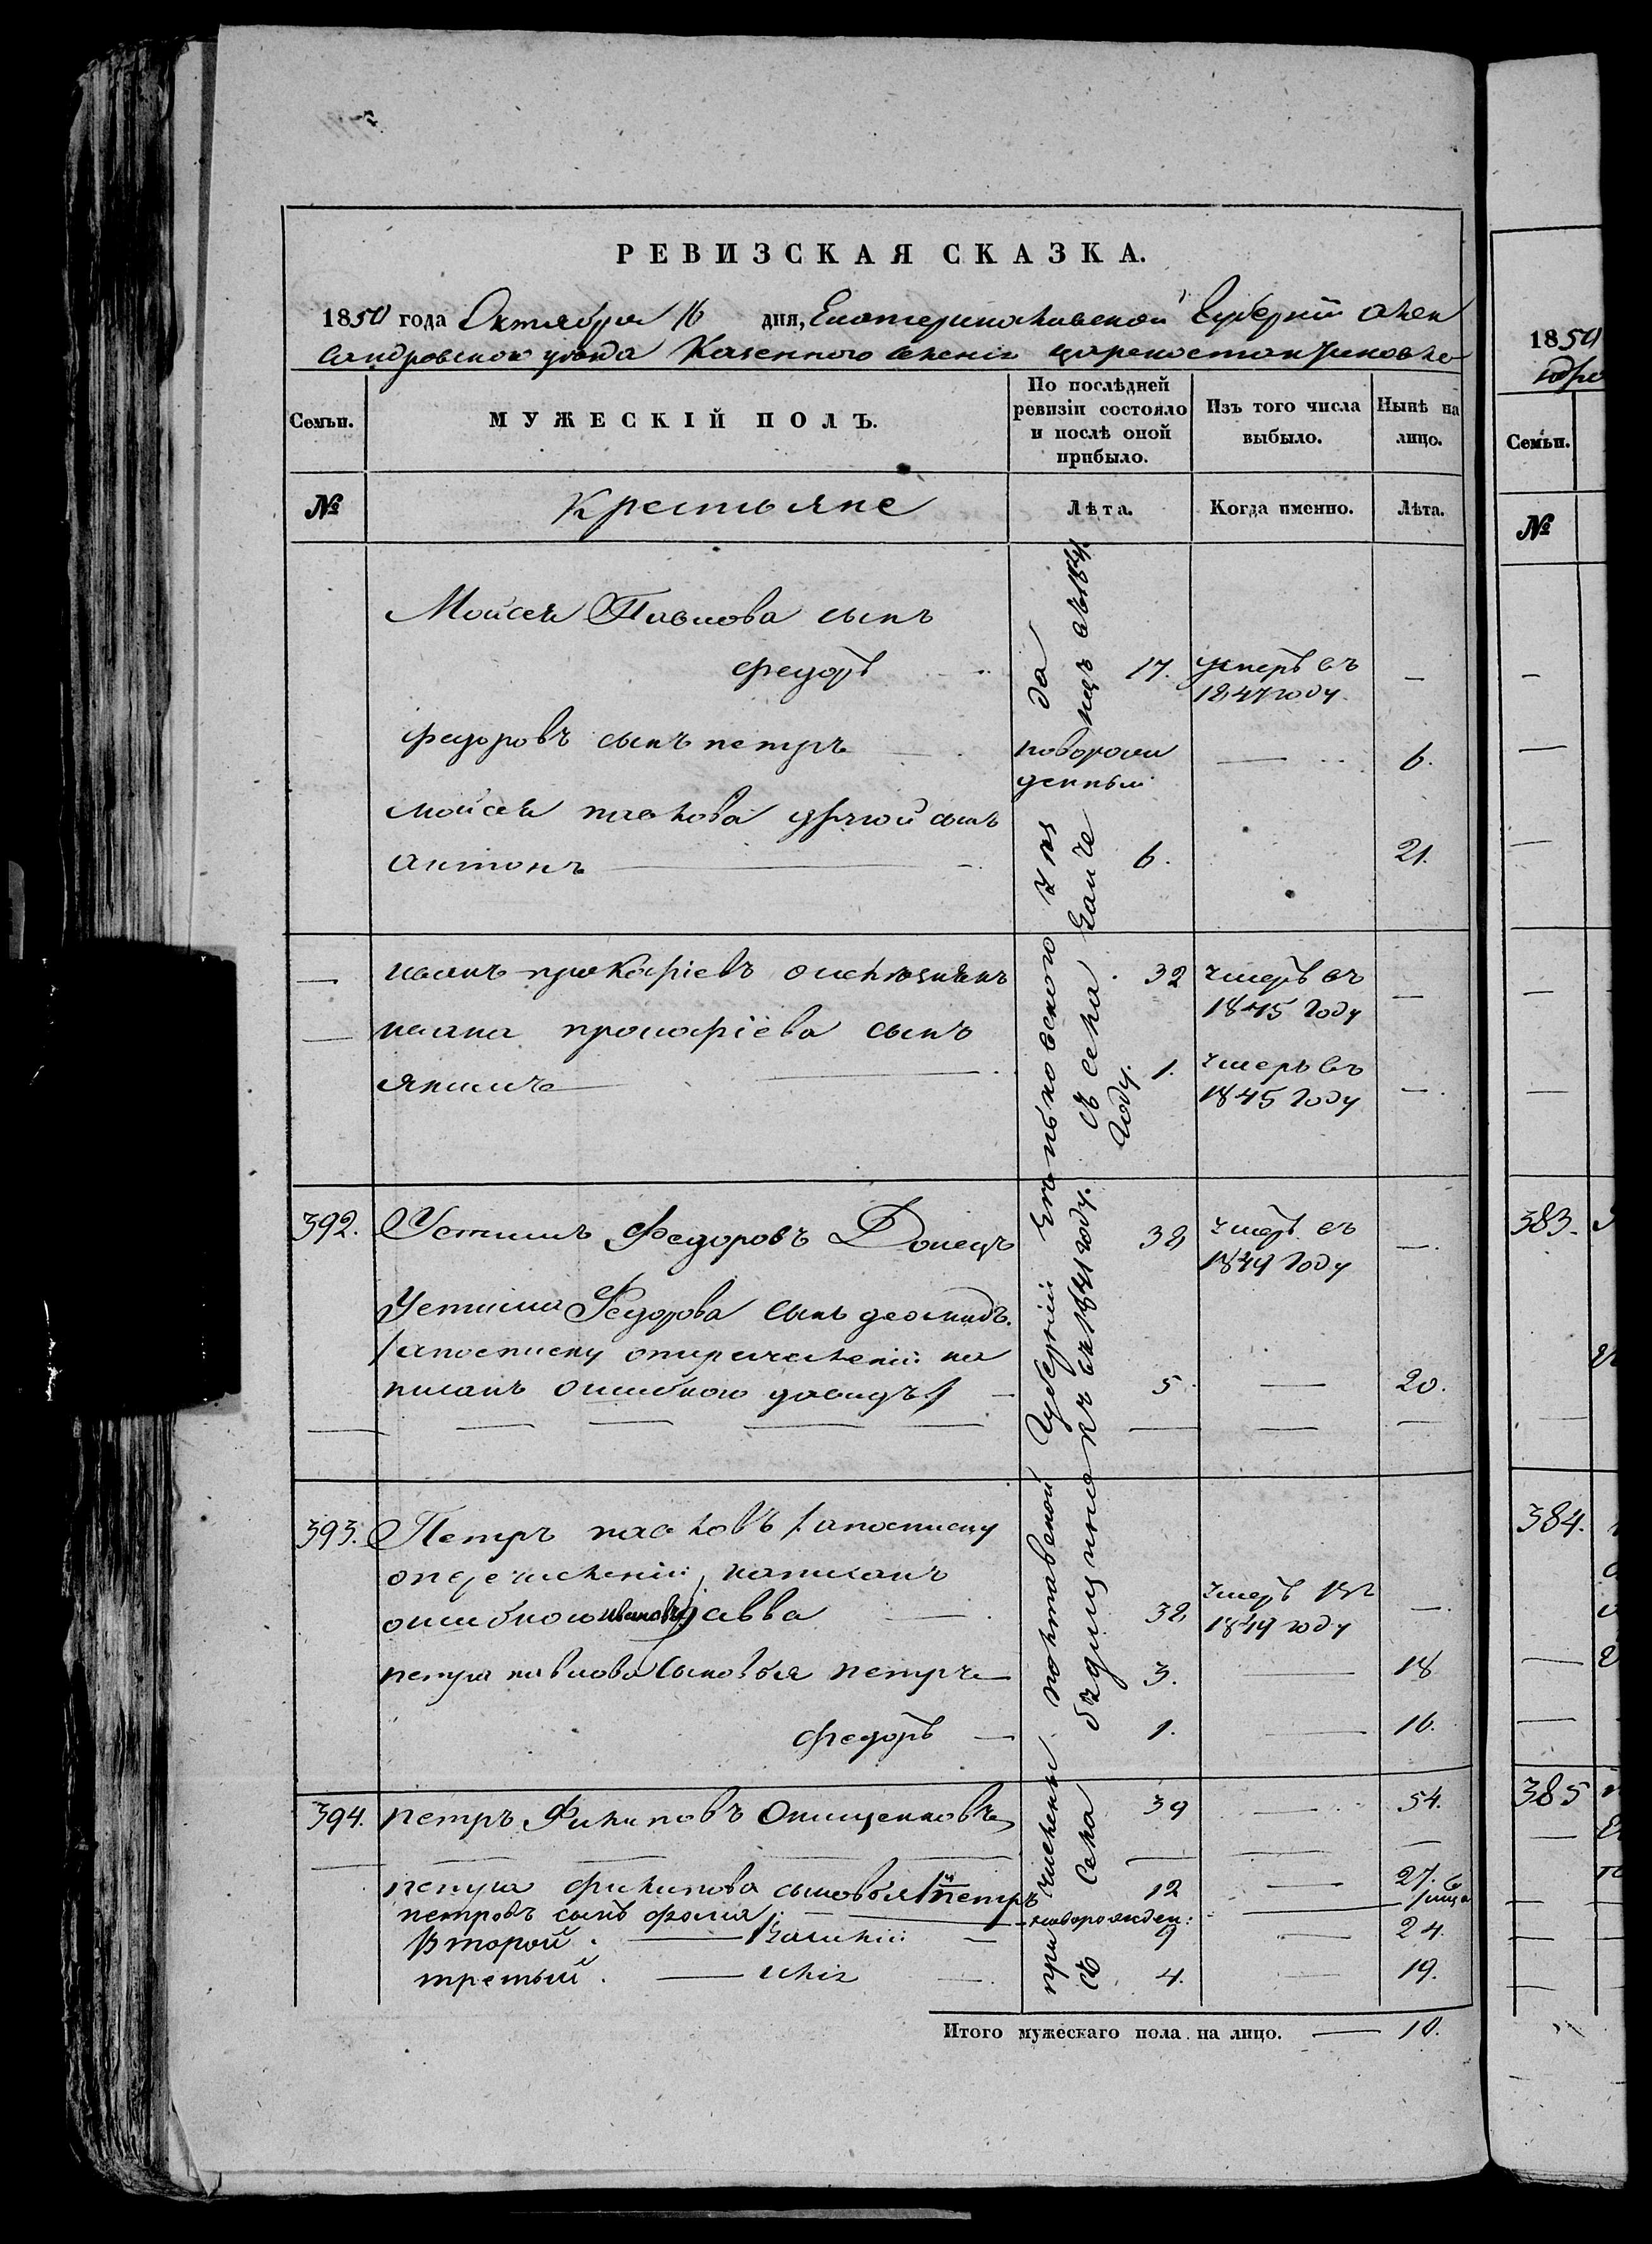 РЕВИЗСКАЯ СКАЗКА.
1850 года Октября 16 дня, Екатеринославской Губерніи Алек
сандровского уѣзда Казенного селенія Цареконстантиновки
Семьи.
МУЖЕСКІЙ ПОЛЪ.
По послѣдней
ревизіи состояло
и послѣ оной
прибыло.
Изъ того числа
выбыло.
Нынѣ на
лицо.
№
Крестьяне
Лѣта.
Когда именно.
Лѣта.
Мойсея Павлова сынъ
Федоръ 17. умеръ въ —
1847 году.
Федоровъ сынъ петръ новорож — 6.
денный
Мойсея павлова другой сынъ
Антонъ — 6. 21.
— иванъ прокофіевъ 32 умеръ въ —
1845 году
— ивана прокофіева сынъ
якимъ — 1. умеръ въ —
1845 году
392. Устимъ Федоровъ Донецъ 32 умеръ въ —
1849 году
Устима Федорова сынъ
/ апосписку оперечисленіи на
писанъ ошибкою давидъ / — 5 — 20.
393. Петръ павловъ / апосписку
оперечисленіи написанъ
ошибкою ивановъ / савва — 32 умеръ въ —
1849 году
петра павлова сыновья петръ — 3. — 18
Федоръ — 1. — 16.
394. петръ Филиповъ Онищенковъ 39 — 54.
петра филипова сыновья 1й петръ 12 — 27.
петровъ сынъ фома — новорожден: —
Второй. — Василій — 9 — 24.
третьий. — илія — 4. — 19.
причисленны полтавской Губерніи
съ села
году.
съ села
году.
Итого мужескаго пола на лицо. — 10.
1850
Семьи.
№
383.
384.
385